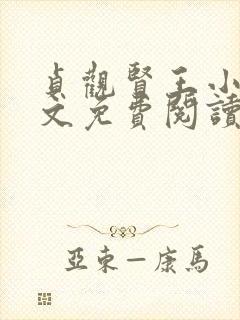 貞觀賢王小
文免費閱讀
亞東—康馬